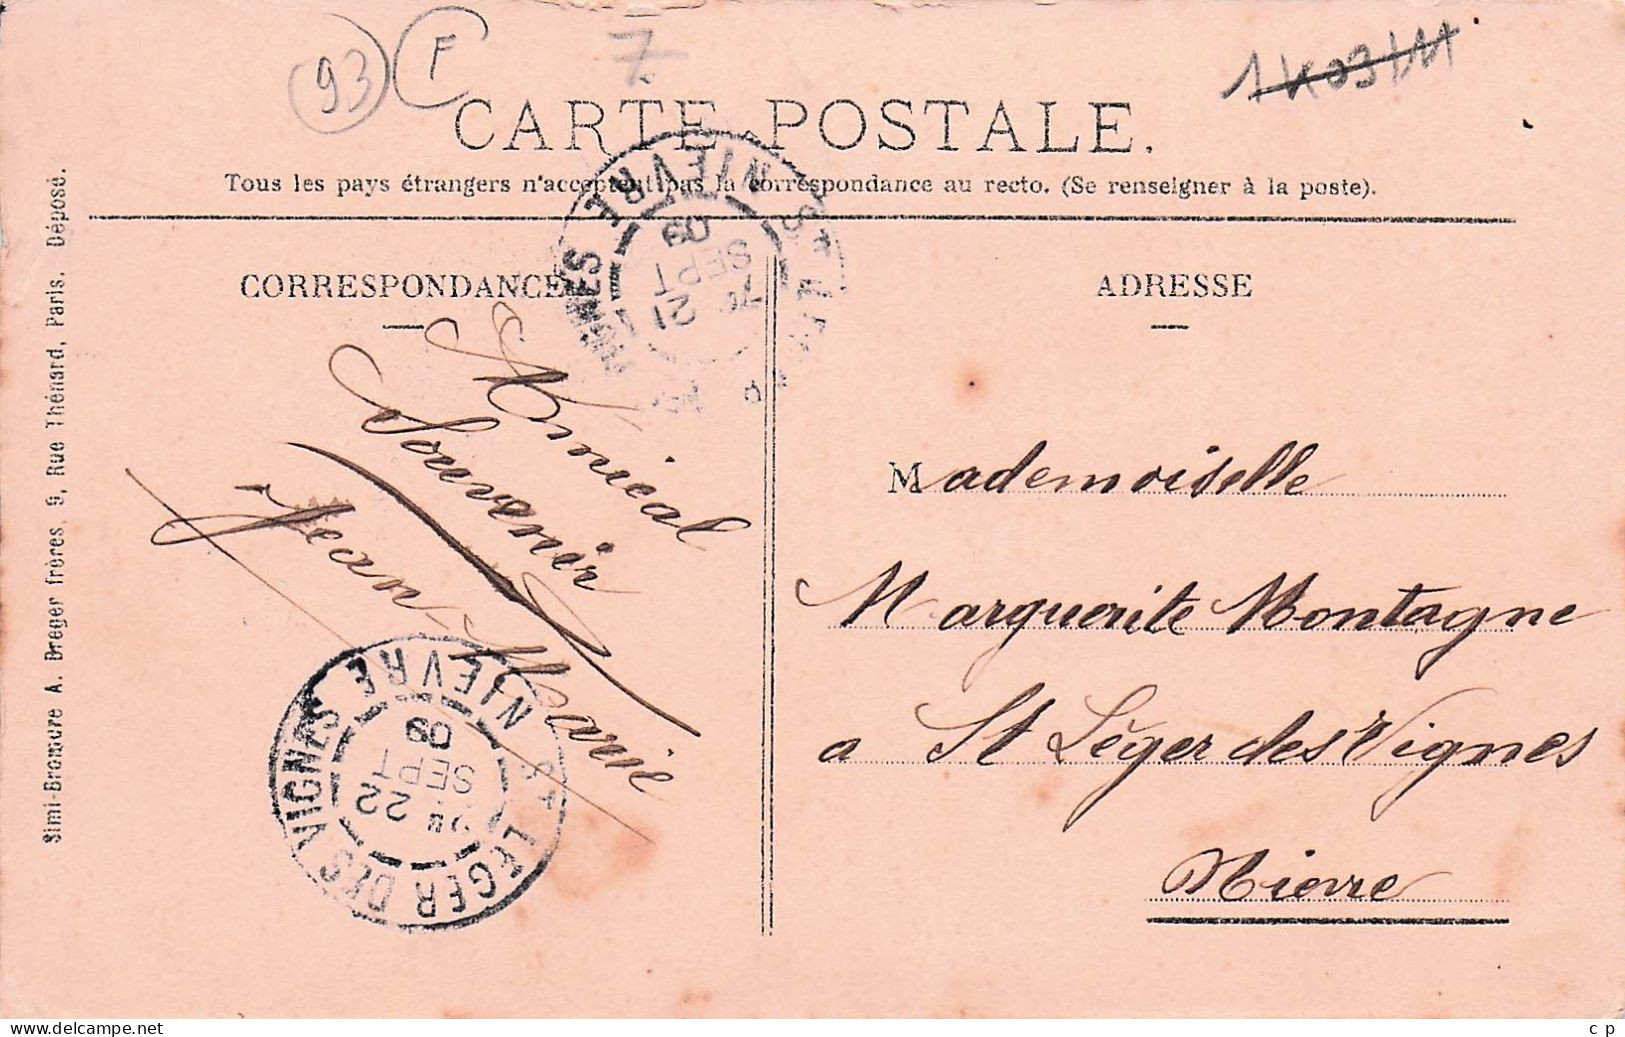 93 F 7
CARTE POSTALE.
Tous les pays étrangers n'acceptent pas la correspondance au recto. (Se renseigner à la poste).
Simi-Bromure A. Breger frères, 9, Rue Thénard, Paris. Déposé.
CORRESPONDANCE
Amical
Souvenir
Jean-Marie
ADRESSE
Mademoiselle
Marguerite Montagne
a St Léger des Vignes
Nievre
NIEVRE
21
SEPT
09
VIGNES
ST LEGER DES VIGNES
NIEVRE
22
SEPT
09
c p